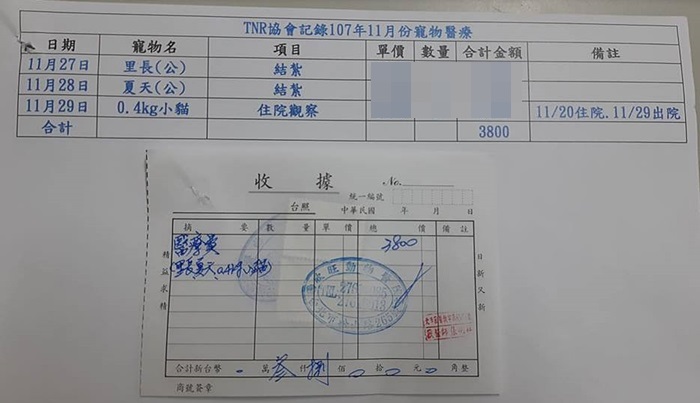 TNR協會記錄107年11月份寵物醫療
日期 寵物名 項目 單價 數量 合計金額 備註
11月27日 里長(公) 結紮
11月28日 夏天(公) 結紮
11月29日 0.4kg小貓 住院觀察 11/20住院.11/29出院
合計 3800
收據 No.
統一編號
台照 中華民國 年 月 日
摘要 數量 單價 總價 備註
醫療費 3800
(里長夏天0.4kg小貓)
精益求精
日新又新
合計新台幣 萬 參 仟 捌 佰 拾 元 角整
商號簽章